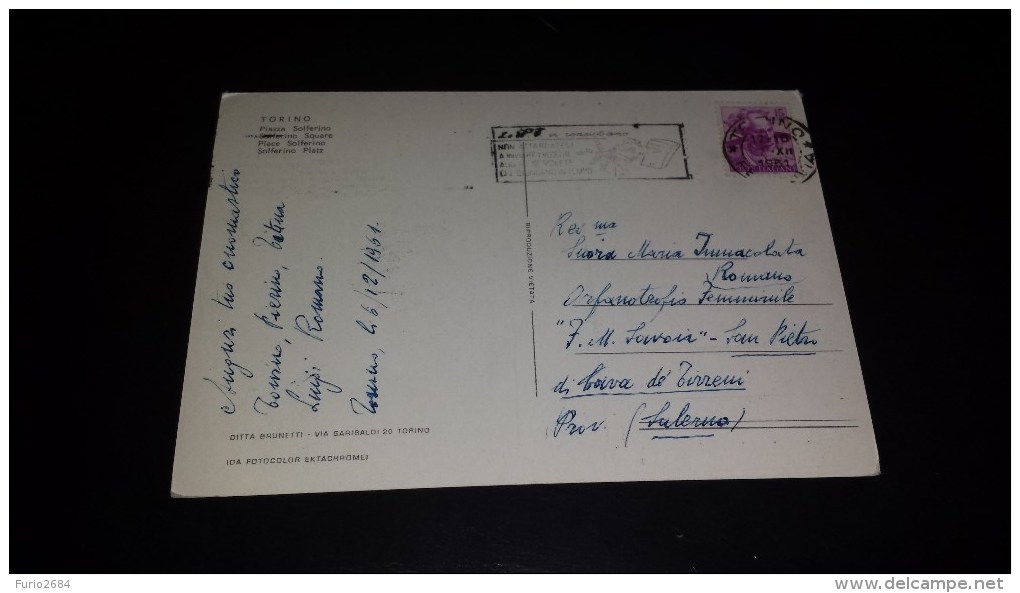 TORINO
Piazza Solferino
Solferino Square
Place Solferino
Solferino Platz
Auguri tuo onomastico
Tonino, Pierino, Titina
Luigi Romano.
Torino, li 6/12/1961.
DITTA BRUNETTI - VIA GARIBALDI 20 TORINO
IDA FOTOCOLOR EKTACHROME
RIPRODUZIONE VIETATA
NON
XII
ITALIANE
Rev ma
Suora Maria Immacolata
Romano
Orfanotrofio Femminile
"F. M. Savoia" - San Pietro
di Cava de' Tirreni
Prov. (Salerno)
Furio2684
www.delcampe.net